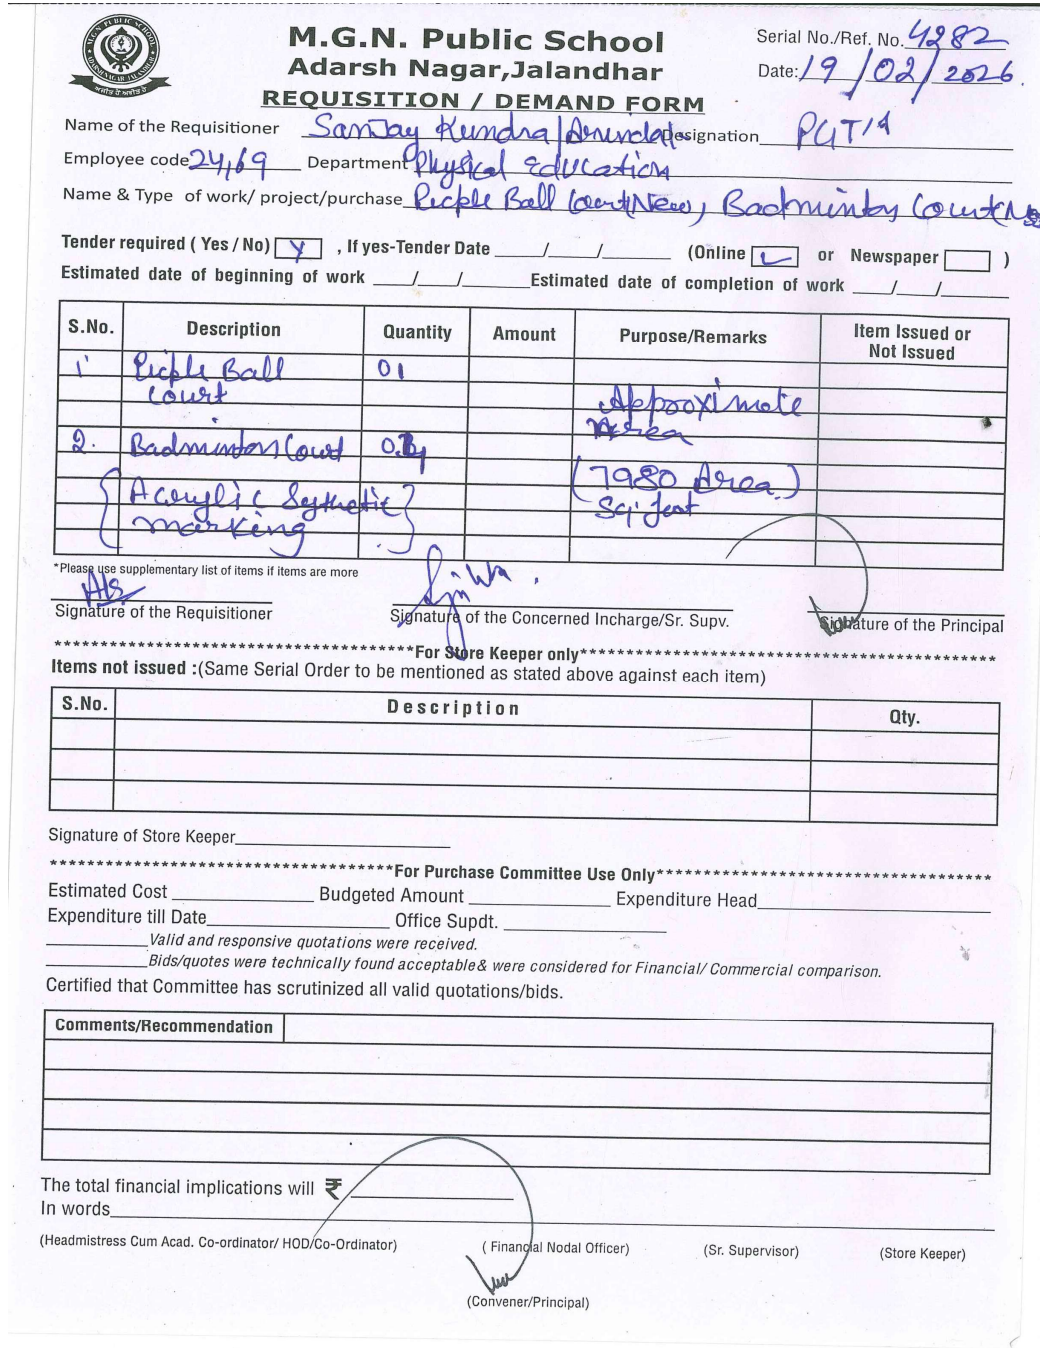 M.G.N. PUBLIC SCHOOL
ADARSH NAGAR JALANDHAR
M.G.N. Public School
Adarsh Nagar,Jalandhar
REQUISITION / DEMAND FORM
Serial No./Ref. No. 4282
Date: 19/02/2026.
Name of the Requisitioner Sanjay Kundra/ Designation PGT/A
Employee code 24,69 Department Physical Education
Name & Type of work/ project/purchase Pickle Ball Court(New), Badminton Court
Tender required ( Yes / No) Y , If yes-Tender Date ___/___/______ (Online ✓ or Newspaper )
Estimated date of beginning of work ___/___/______ Estimated date of completion of work ___/___/______
S.No. Description Quantity Amount Purpose/Remarks Item Issued or Not Issued
1 Pickle Ball 01
Court Approximate
Area
2. Badminton Court
(7980 Area)
{Acrylic Sythetic Sq. feet
marking}
*Please use supplementary list of items if items are more
Signature of the Requisitioner Signature of the Concerned Incharge/Sr. Supv. Signature of the Principal
**************************************For Store Keeper only********************************************
Items not issued :(Same Serial Order to be mentioned as stated above against each item)
S.No. Description Qty.
Signature of Store Keeper
************************************For Purchase Committee Use Only***********************************
Estimated Cost Budgeted Amount Expenditure Head
Expenditure till Date Office Supdt.
Valid and responsive quotations were received.
Bids/quotes were technically found acceptable& were considered for Financial/ Commercial comparison.
Certified that Committee has scrutinized all valid quotations/bids.
Comments/Recommendation
The total financial implications will ₹
In words
(Headmistress Cum Acad. Co-ordinator/ HOD/Co-Ordinator) ( Financial Nodal Officer) (Sr. Supervisor) (Store Keeper)
(Convener/Principal)